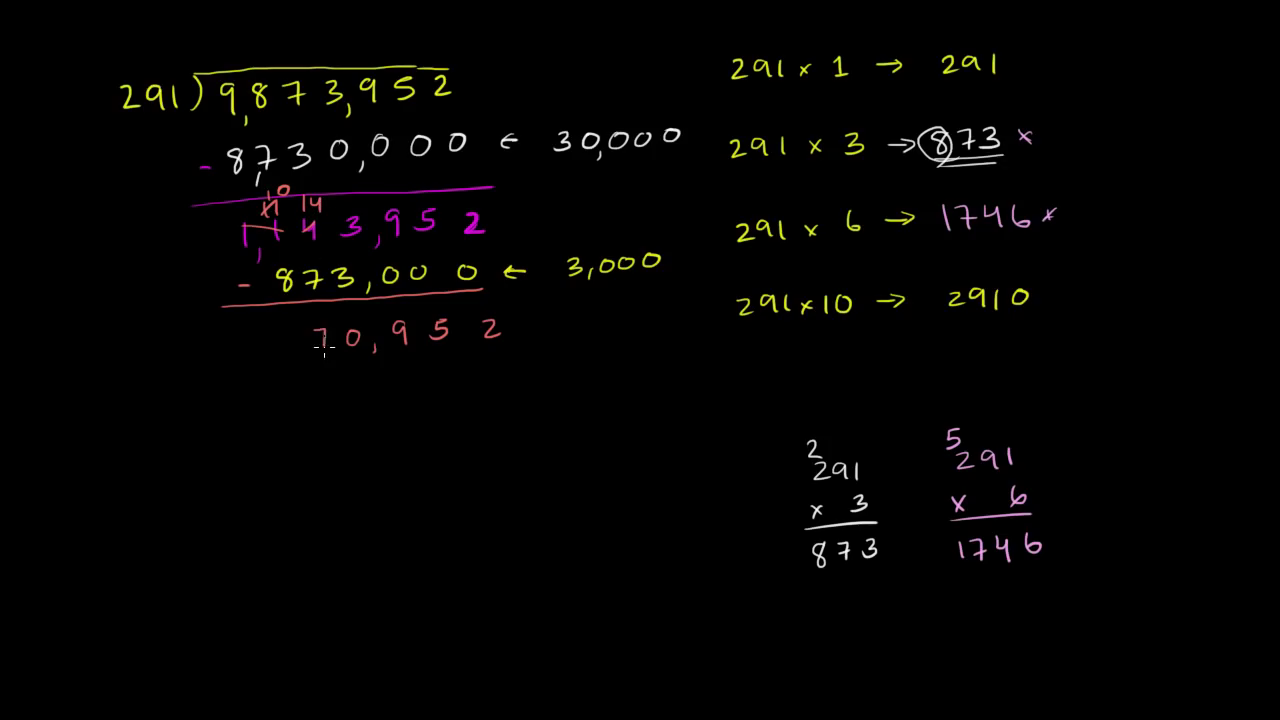 291)9,873,952
- 8,730,000 ← 30,000
10 14
1,143,952
- 873,000 ← 3,000
70,952
291 × 1 → 291
291 × 3 → 873 ×
291 × 6 → 1746 ×
291 × 10 → 2910
2
291
× 3
873
5
291
× 6
1746